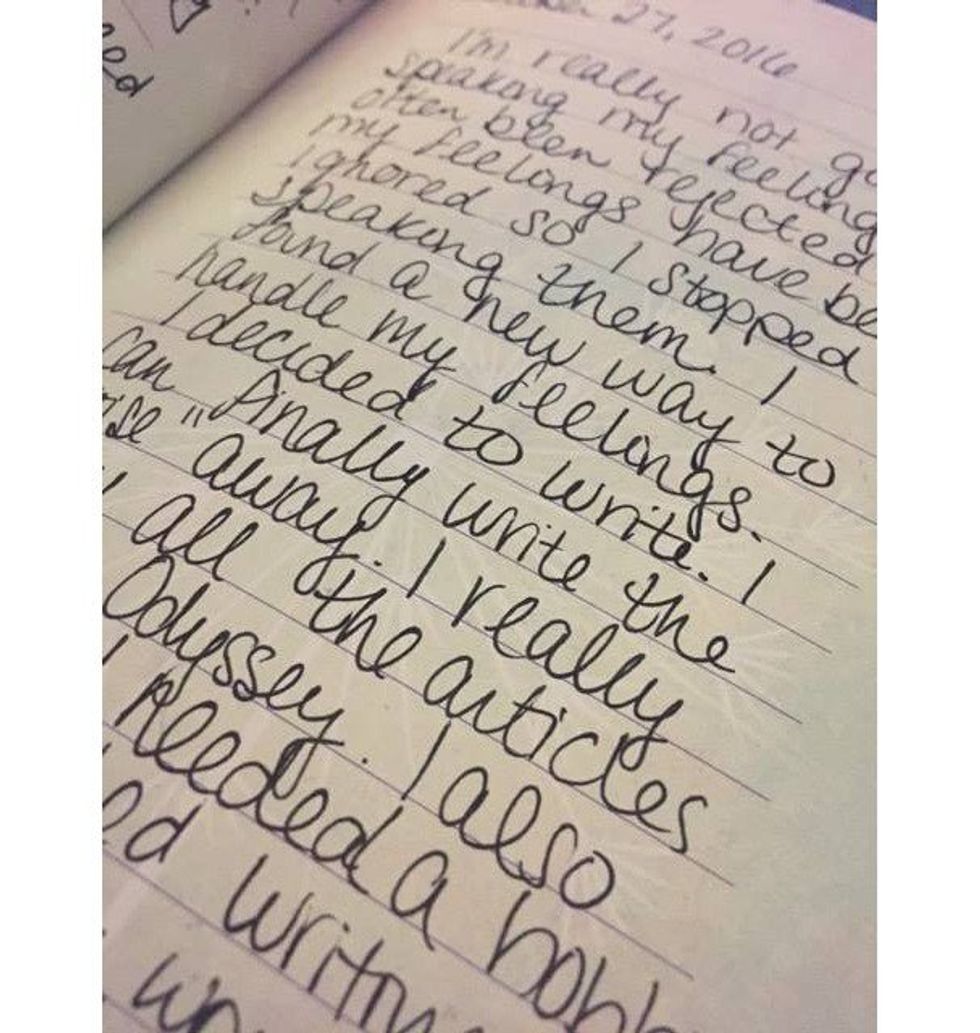 ed
27, 2016
I'm really not
speaking my feelings
often been rejected
my feelings have be
ignored so I stopped
speaking them. I
found a new way to
handle my feelings.
I decided to write. I
can finally write the
ise "away". I really
all the articles
Odyssey. I also
needed a hobb
ed writin